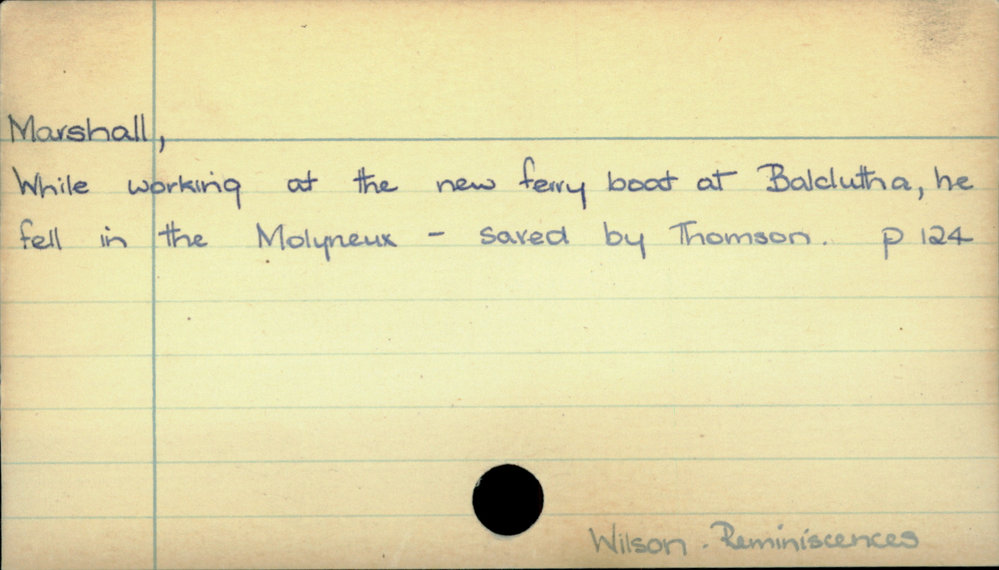 Marshall,
While working at the new ferry boat at Balclutha, he
fell in the Molyneux - saved by Thomson. p 124
Wilson - Reminiscences